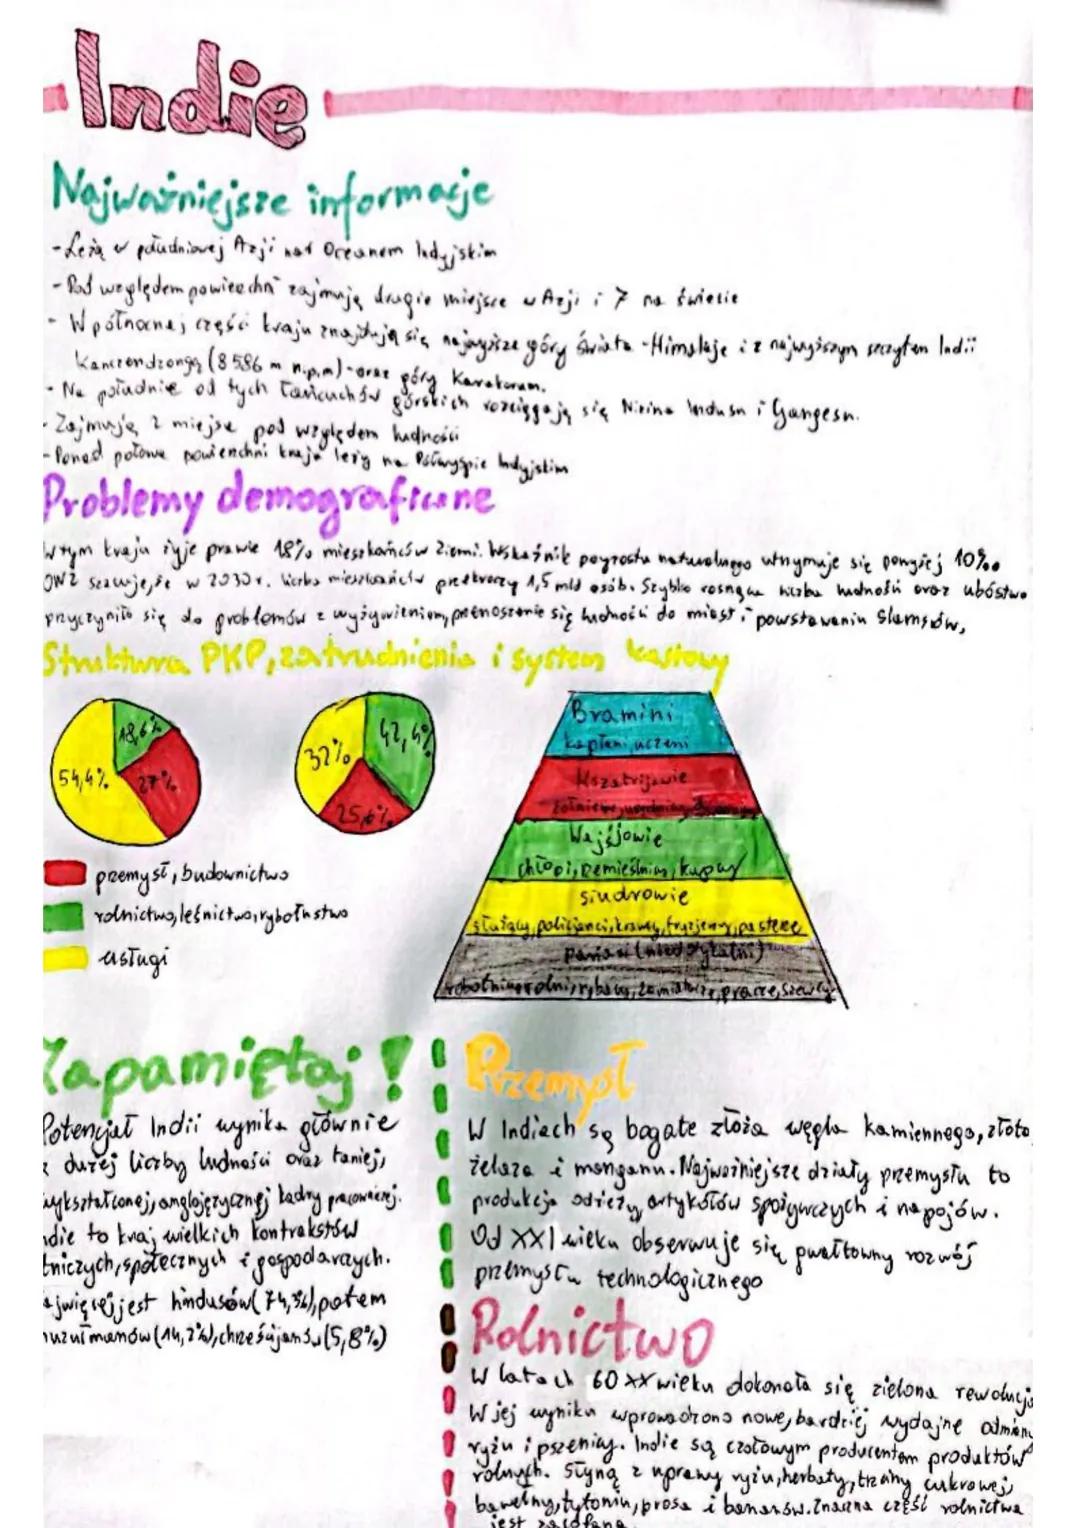 Indie
Najważniejsze informacje
- Leżą w południowej Azji nad Oceanem Indyjskim
- Pod względem powierzchni zajmują drugie miejsce w Azji i 7 na świecie
- W północnej części kraju znajdują się najwyższe góry świata - Himalaje i z najwyższym szczytem Indii
Kanczendzongą (8586 m n.p.m) - oraz góry Karakorum.
- Na południe od tych łańcuchów górskich rozciągają się Nizina Indusu i Gangesu.
- Zajmują 2 miejsce pod względem ludności
- Ponad połowa powierzchni kraju leży na Półwyspie Indyjskim
Problemy demograficzne
W tym kraju żyje prawie 18% mieszkańców Ziemi. Wskaźnik przyrostu naturalnego utrzymuje się powyżej 10‰
ONZ szacuje, że w 2030 r. liczba mieszkańców przekroczy 1,5 mld osób. Szybko rosnąca liczba ludności oraz ubóstwo
przyczyniło się do problemów z wyżywieniem, przenoszenie się ludności do miast i powstawaniu slamsów,
Struktura PKP, zatrudnienia i system kastowy
18,6%
54,4%
27%
32%
42,4%
25,6%
Bramini
kapłani, uczeni
Kszatrijowie
żołnierze, urzędnicy
Wajśjowie
chłopi, rzemieślnicy, kupcy
siudrowie
służący, policjanci, krawcy, fryzjerzy, pasterze
pariasi (niedotykalni)
robotnicy rolni, rybacy, zamiatacze, pracze, szewcy
przemysł, budownictwo
rolnictwo, leśnictwo, rybołustwo
usługi
Zapamiętaj!
Potencjał Indii wynika głównie
z dużej liczby ludności oraz taniej,
wykształconej, anglojęzycznej kadry pracowniczej.
ndie to kraj wielkich kontrakstów
tniczych, społecznych i gospodarczych.
ajwięcej jest hindusów (74,3%), potem
muzułmanów (14,2%), chrześcijanów (5,8%)
Przemysł
W Indiach są bogate złoża węgla kamiennego, złota
żelaza i manganu. Najważniejsze działy przemysłu to
produkcja odzieży, artykółów spożywczych i napojów.
Od XXI wieku obserwuje się gwałtowny rozwój
przemysłu technologicznego
Rolnictwo
W latach 60 XX wieku dokonała się zielona rewolucja
W jej wyniku wprowadzono nowe, bardziej wydajne odmiany
ryżu i pszenicy. Indie są czołowym producentem produktów
rolnych. Słyną z uprawy ryżu, herbaty, trzciny cukrowej,
bawełny, tytoniu, prosa i bananów. Znaczna część rolnictwa
jest zacofana.